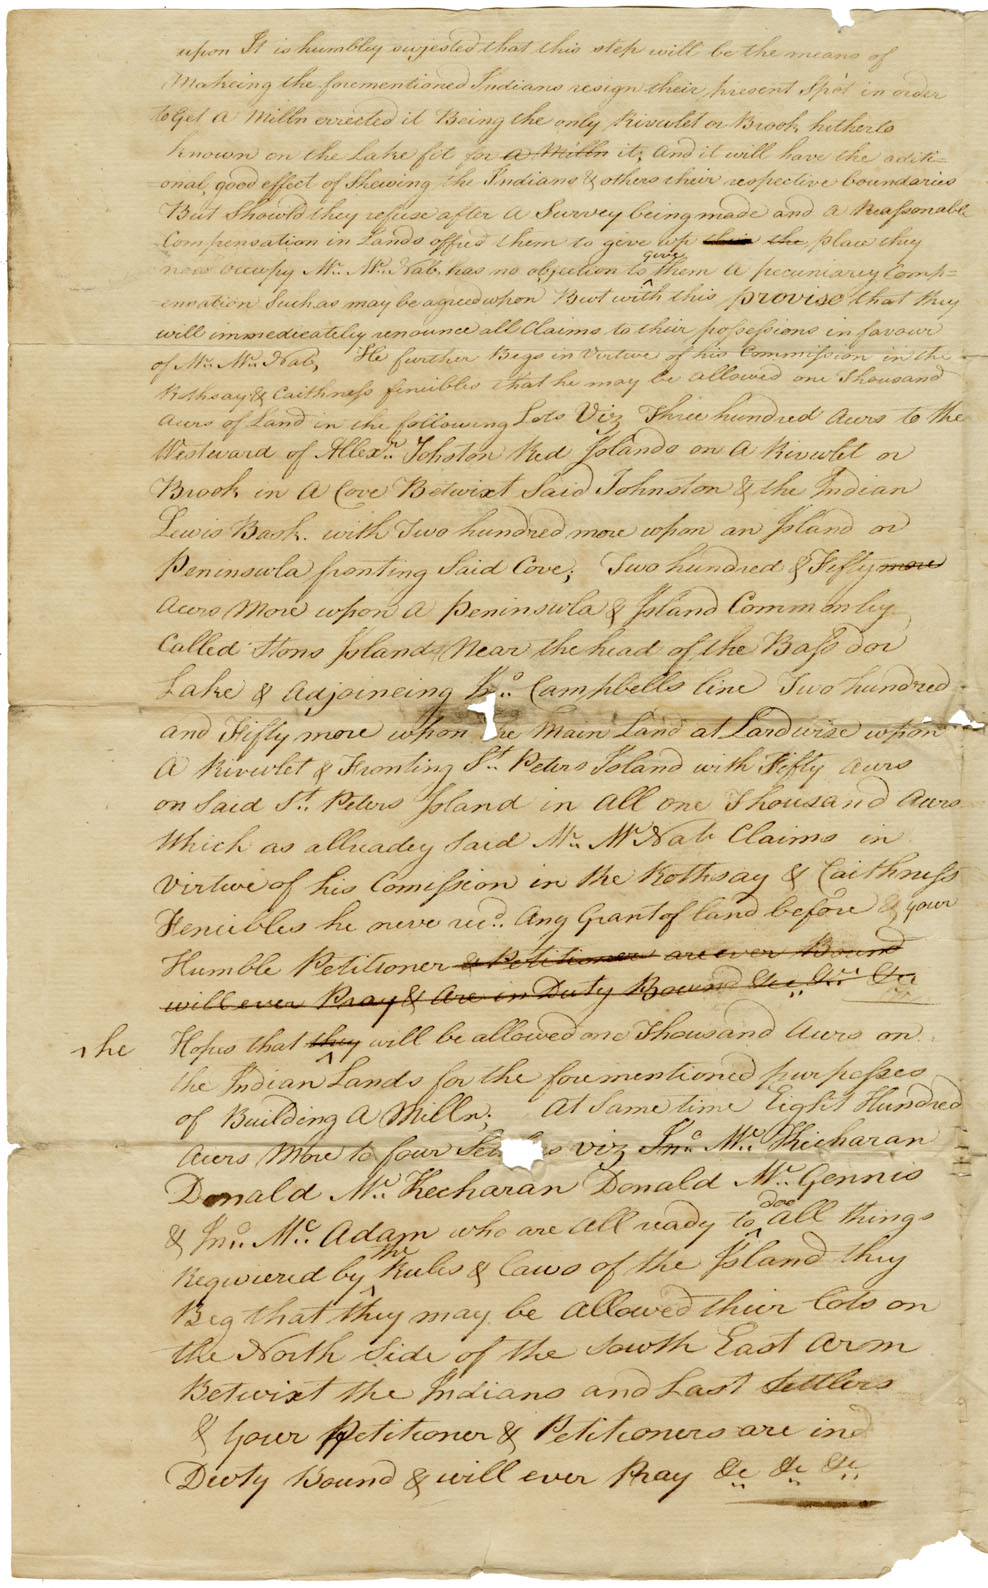 upon It is humbley sujested that this step will be the means of
Makeing the forementioned Indians resign their present Spot in order
to Get a Milln errected it Being the only Rivulet or Brook hitherto
known on the Lake fit for a Milln it, and it will have the aditi=
=onal, good effect of Shewing the Indians & others their respective boundaries
But Should they refuse after a Survey being made and a Reassonable
Compensation in Lands offred them to give up their the place they
now occupy Mr. Mc. Nab, has no objection to give them a pecuniarey Comp=
=ensation Such as may be agreed upon But with this proviso that they
will immedicately renounce all Claims to their possessions in favour
of Mr. Mc. Nab, He further Begs in Virtue of his Commission in the
Rothsay & Caithness fencibles that he may be allowed one Thousand
Acers of Land in the following Lots Viz Three hundred Acers to the
Westward of Allexr. Johston Red Islands on a Rivulet or
Brook in a Cove Betwixt Said Johnston & the Indian
Lewis Bask. with Two hundred more upon an Island or
Peninsula fronting Said Cove; Two hundred & Fifty more
Acers More upon a Peninsula & Island Commonley
Called Stons Islands Near the head of the Bass dor
Lake & Adjoineing Campbells line Two hundred
and Fifty more upon the Main Land at Lardwise upon
a Rivulet & Fronting St. Peters Island with Fifty Acers
on Said St. Peters Island in all one Thousand Acers
Which as allreadey Said Mr. Mc Nab Claims in
Virtue of his Comission in the Rothsay & Caithness
Fencibles he neve recd. Any Grant of land before & your
Humble Petitioner & Petitioners are ever Bound
will ever Pray & Are in Duty Bound &c &c &c
The Hopes that they will be allowed one Thousand Acers on
the Indian Lands for the forementioned purposses
of Building a Milln; At Same time Eight Hundred
Acers More to four viz Jno. Mc. Kicharan
Donald Mc. Kecharan Donald Mc. Gennis
& Jno. Mc. Adam who are all ready to doo all things
Requiered by the Rules & Laws of the Island they
Beg that they may be allowed their Lots on
the North Side of the South East Arm
Betwixt the Indians and Last Settlers
& your Petitioner & Petitioners are in
Duty Bound & will ever Pray &c &c &c